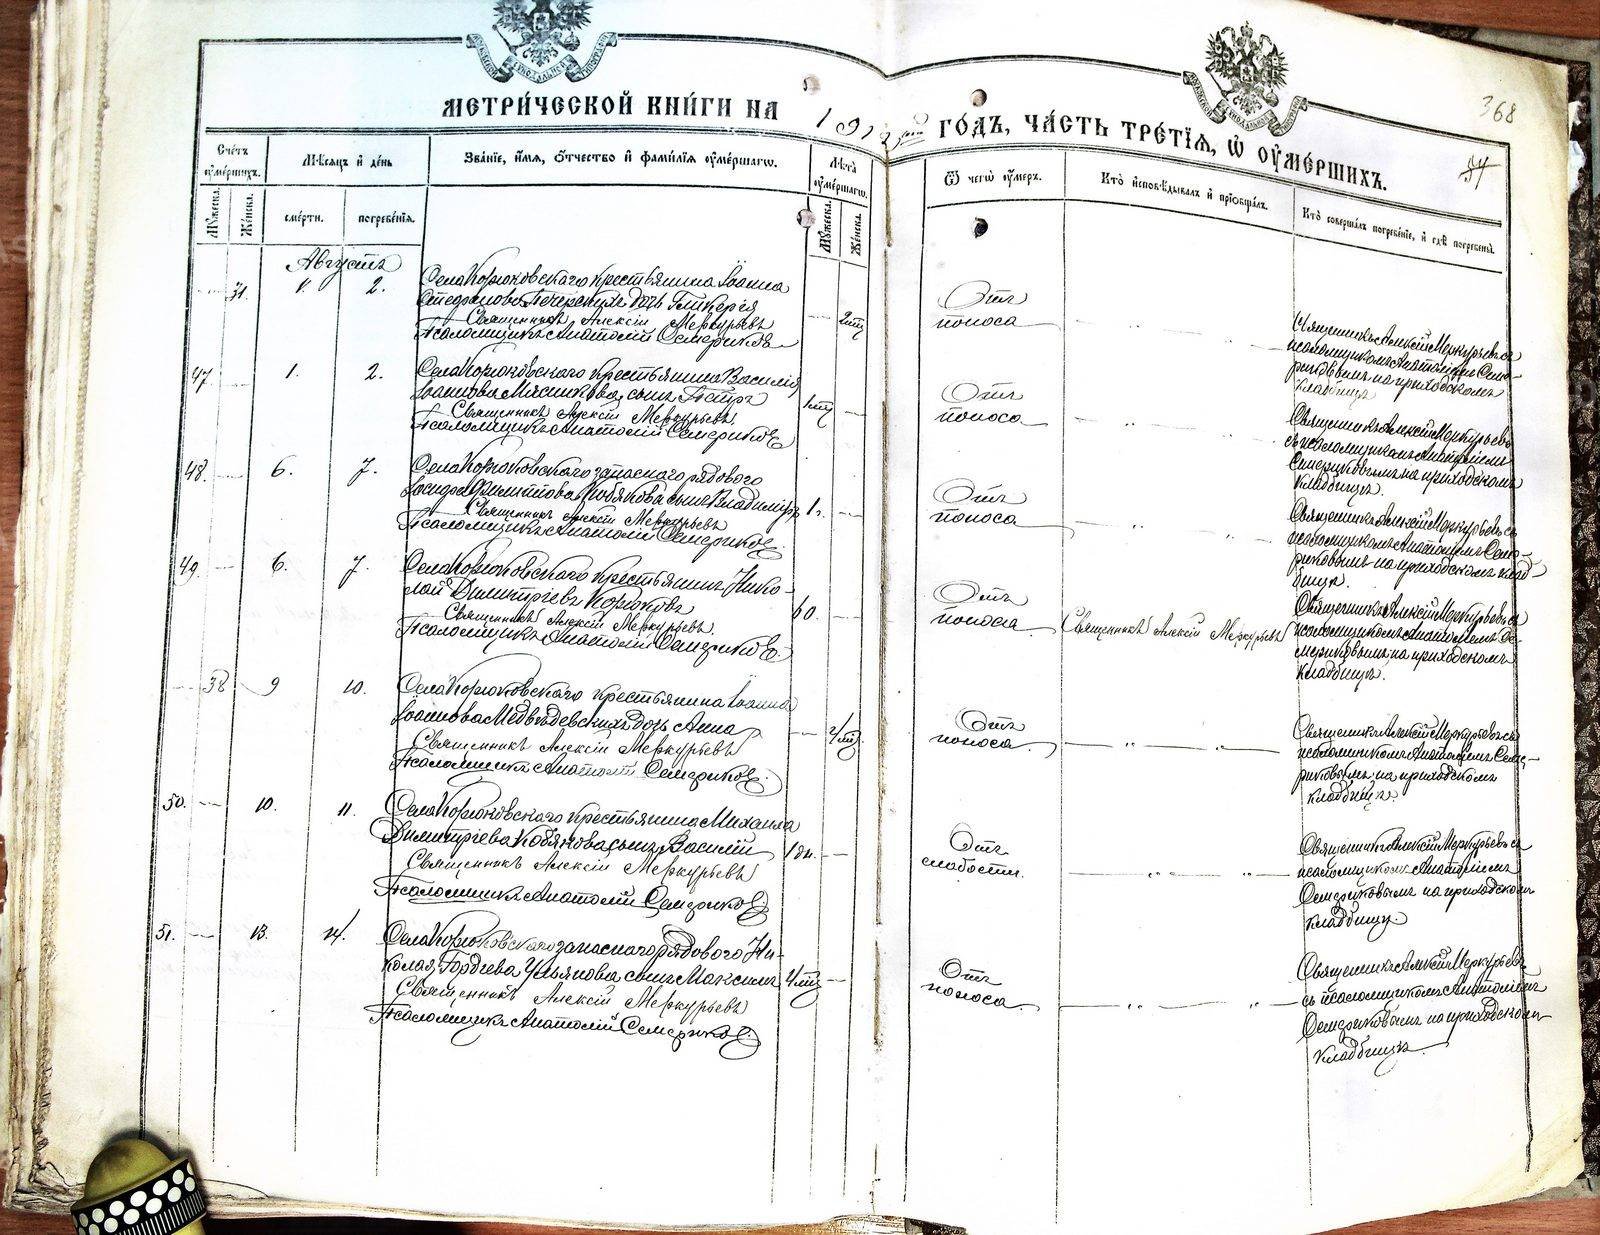 МЕТРИ́ЧЕСКОЙ КНИ́ГИ НА 1912 ГО́ДЪ, ЧА́СТЬ ТРЕ́ТІЯ, Ѡ ОУМЕ́РШИХЪ.
368
Сче́тъ оуме́ршихъ.
Мꙋ́жеска.
Же́нска.
Мѣ́сяцъ и де́нь
сме́рти.
погребе́нія.
Зва́ніе, и́мя, о́тчество и фами́лія оуме́ршагѡ.
Лѣ́та оуме́ршагѡ.
Мꙋ́жеска.
Же́нска.
Ѿ чегѡ̀ оу́меръ.
Кто̀ исповѣ́дывалъ и пріобща́лъ.
Кто̀ соверша́лъ погребе́ніе, и гдѣ̀ погребены̀.
Августъ
1. 2.
Села Корюковскаго крестьянина Іоанна
Стефанова Печерскихъ дочь Гликерія
Священникъ Алексій Меркурьевъ
Псаломщикъ Анатолій Семериковъ
2 мц
Отъ
поноса
Священникъ Алексій Меркурьевъ съ
псаломщикомъ Анатоліемъ Семе-
риковымъ на приходскомъ
кладбищѣ
47 1. 2.
Села Корюковскаго крестьянина Василія
Іоаннова Мясникова сынъ Петръ
Священникъ Алексій Меркурьевъ
Псаломщикъ Анатолій Семериковъ
1 мц
Отъ
поноса
Священникъ Алексій Меркурьевъ
съ псаломщикомъ Анатоліемъ
Семериковымъ на приходскомъ
кладбищѣ.
48. 6. 7.
Села Корюковскаго запаснаго рядового
Филиппова Кобякова сынъ Владиміръ
Священникъ Алексій Меркурьевъ
Псаломщикъ Анатолій Семериковъ
1 г.
Отъ
поноса
Священникъ Алексій Меркурьевъ съ
псаломщикомъ Анатоліемъ Семе-
риковымъ на приходскомъ клад-
бищѣ.
49. 6. 7.
Села Корюковскаго крестьянинъ Нико-
лай Димитріевъ Корюковъ
Священникъ Алексій Меркурьевъ
Псаломщикъ Анатолій Семериковъ
60.
Отъ
поноса
Священникъ Алексій Меркурьевъ
Священникъ Алексій Меркурьевъ съ
псаломщикомъ Анатоліемъ Се-
мериковымъ на приходскомъ
кладбищѣ.
38 9 10.
Села Корюковскаго крестьянина Іоанна
Іоаннова Медвѣдевскихъ дочь Анна
Священникъ Алексій Меркурьевъ
Псаломщикъ Анатолій Семериковъ
4 мц.
Отъ
поноса.
Священникъ Алексій Меркурьевъ съ
псаломщикомъ Анатоліемъ Семе-
риковымъ на приходскомъ
кладбищѣ.
50. 10. 11.
Села Корюковскаго крестьянина Михаила
Димитріева Кобякова сынъ Василій
Священникъ Алексій Меркурьевъ
Псаломщикъ Анатолій Семериковъ
1 дн.
Отъ
слабости.
Священникъ Алексій Меркурьевъ съ
псаломщикомъ Анатоліемъ
Семериковымъ на приходскомъ
кладбищѣ.
51. 13. 14.
Села Корюковскаго запаснаго рядового Ни-
колая Гордѣева Ульянова сынъ Максимъ
Священникъ Алексій Меркурьевъ
Псаломщикъ Анатолій Семериковъ
4 мц
Отъ
поноса.
Священникъ Алексій Меркурьевъ
съ псаломщикомъ Анатоліемъ
Семериковымъ на приходскомъ
кладбищѣ.